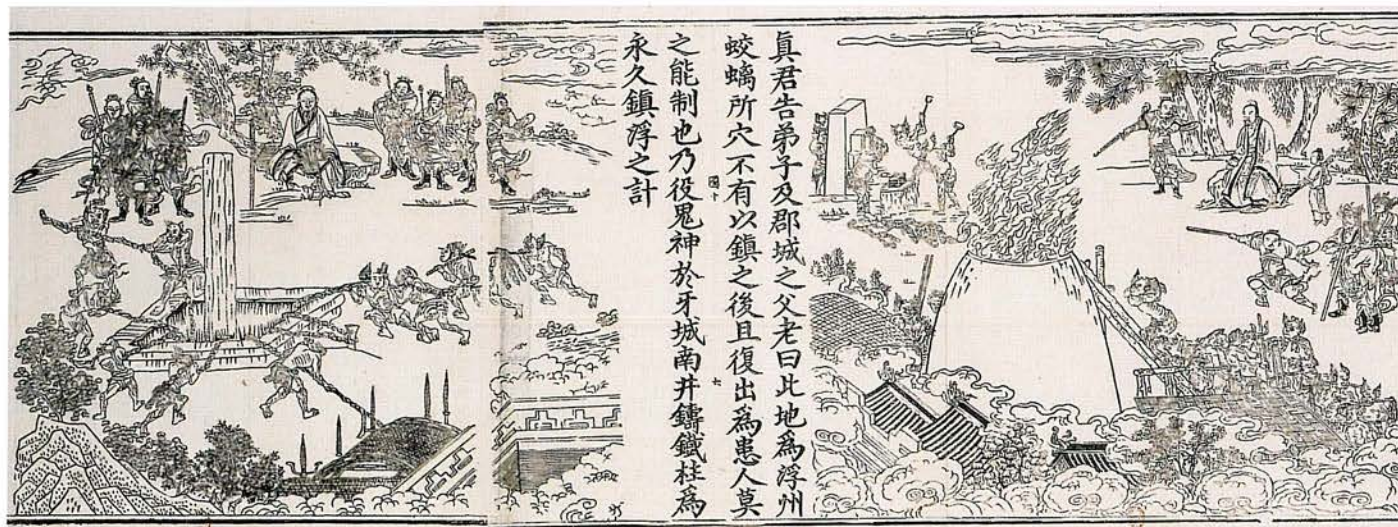 真君告弟子及郡城之父老曰此地為浮州
蛟螭所穴不有以鎮之後且復出為患人莫
之能制也乃役鬼神於牙城南井鑄鐵柱為
永久鎮浮之計
圖十
七